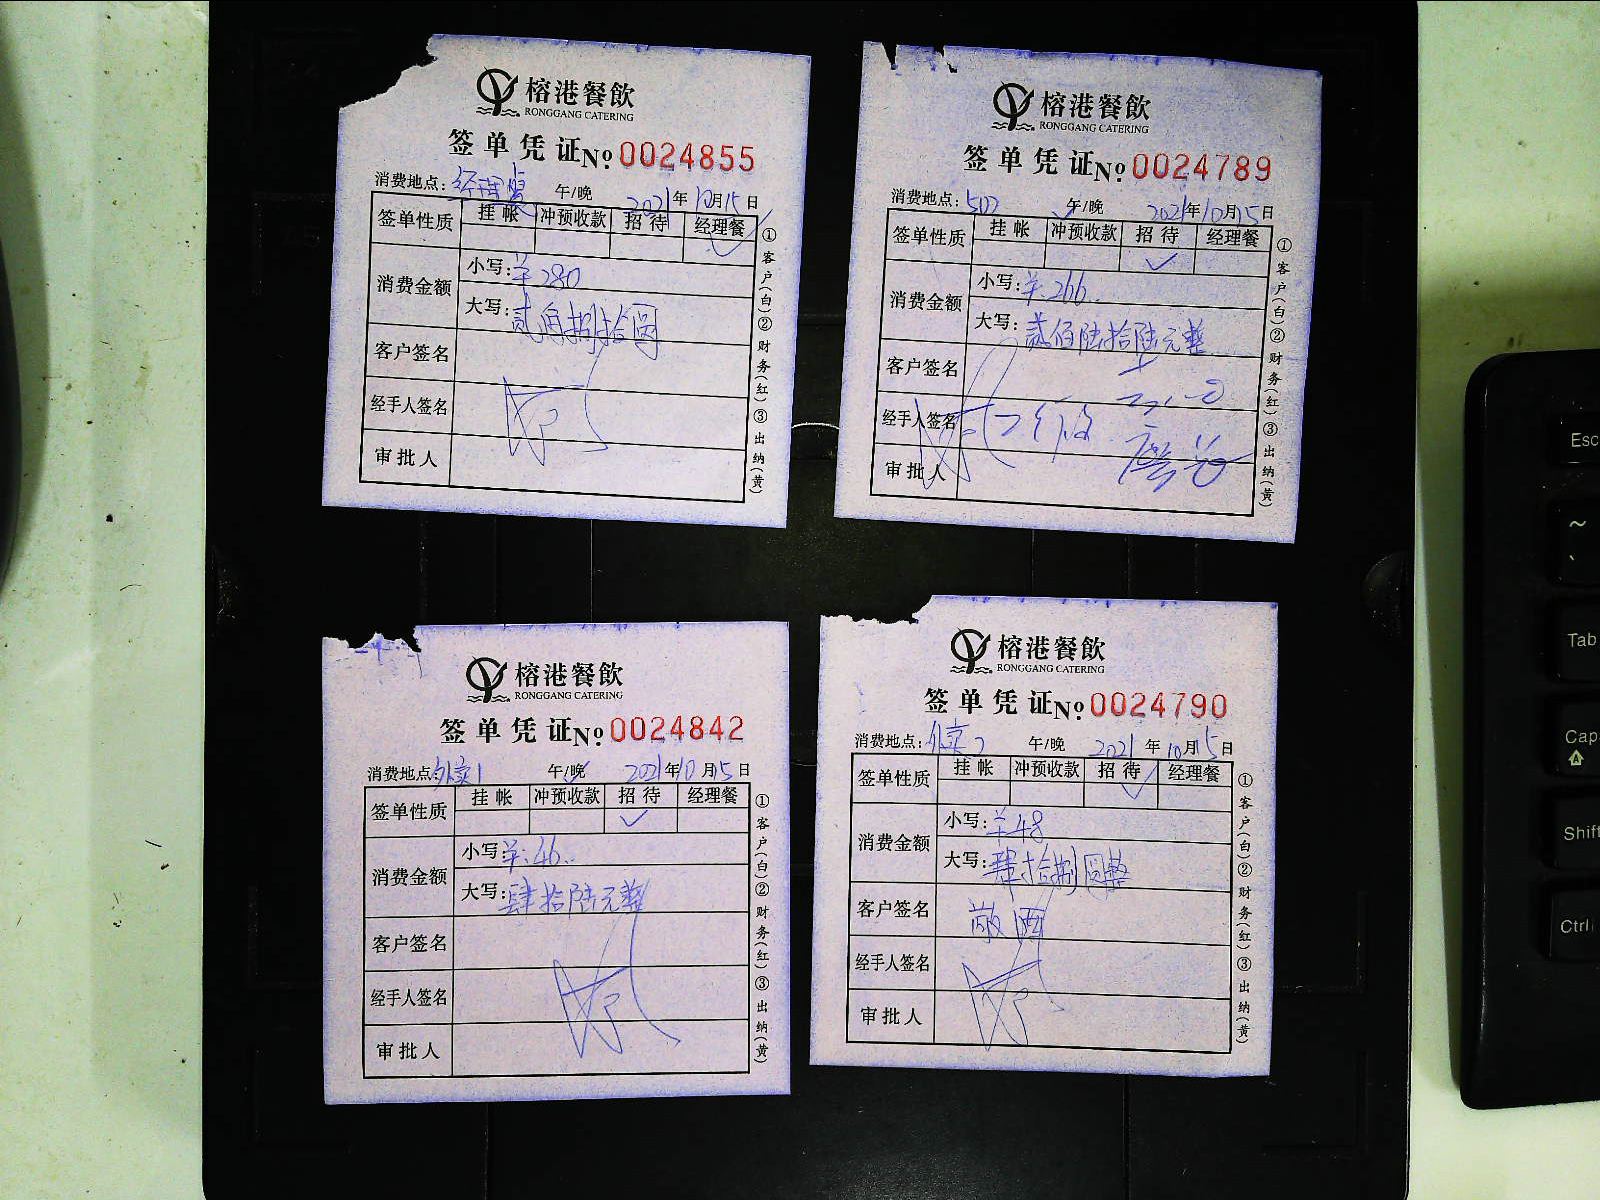 榕港餐飲
RONGGANG CATERING
签单凭证 No. 0024855
消费地点: 经理餐 午/晚 2021年10月15日
签单性质 挂帐 冲预收款 招待 经理餐 ✓
消费金额 小写: 羊280
大写: 贰角捌拾圆
客户签名
经手人签名
审批人
①客户(白)②财务(红)③出纳(黄)
榕港餐飲
RONGGANG CATERING
签单凭证 No. 0024789
消费地点: 502 午/晚 2021年10月15日
签单性质 挂帐 冲预收款 招待 ✓ 经理餐
消费金额 小写: 羊.266..
大写: 贰佰陆拾陆元整
客户签名
经手人签名
审批人
①客户(白)②财务(红)③出纳(黄)
榕港餐飲
RONGGANG CATERING
签单凭证 No. 0024842
消费地点: 外卖1 午/晚 2021年10月15日
签单性质 挂帐 冲预收款 招待 ✓ 经理餐
消费金额 小写: 羊.46..
大写: 肆拾陆元整
客户签名
经手人签名
审批人
①客户(白)②财务(红)③出纳(黄)
榕港餐飲
RONGGANG CATERING
签单凭证 No. 0024790
消费地点: 外卖2 午/晚 2021年10月15日
签单性质 挂帐 冲预收款 招待 ✓ 经理餐
消费金额 小写: 羊48
大写: 肆拾捌圆整
客户签名 敬酒
经手人签名
审批人
①客户(白)②财务(红)③出纳(黄)
Esc
~
Tab
Cap
Shift
Ctrl